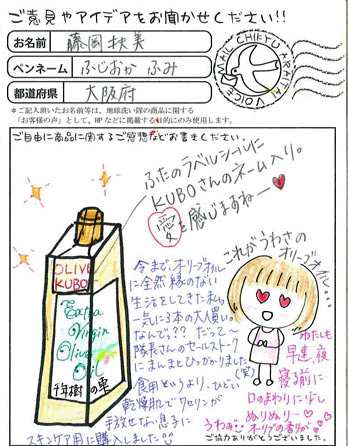 ご意見やアイデアをお聞かせください!!
お名前
藤岡 扶美
ペンネーム
ふじおか ふみ
都道府県
大阪府
MAIL CHIKYU ARAITAI VOICE
＊ご記入頂いたお名前等は、地球洗い隊の商品に関する
「お客様の声」として、HPなどに掲載する目的にのみ使用します。
ご自由に商品に関するご感想などお書きください。
ふたのラベルシールに
KUBOさんのネーム入り。
愛を感じますねー♥
OLIVE
KUBO
Extra
Virgin
Olive
Oil
千年樹の雫
今まで、オリーブオイル
に全然縁のない
生活をしてきた私。
一気に3本の大人買い。
なんで??だって〜
隊長さんのセールストーク
にまんまとひっかかりました(笑)
食用というより、ひどい
乾燥肌でワセリンが
手放せない息子に
スキンケア用に購入しました
これがうわさの
オリーブオイル...
わたしも
早速、夜
寝る前に
口のまわりに少し
ぬりぬり…♡
うわぁ
オリーブの香りが
ご協力ありがとうございました。